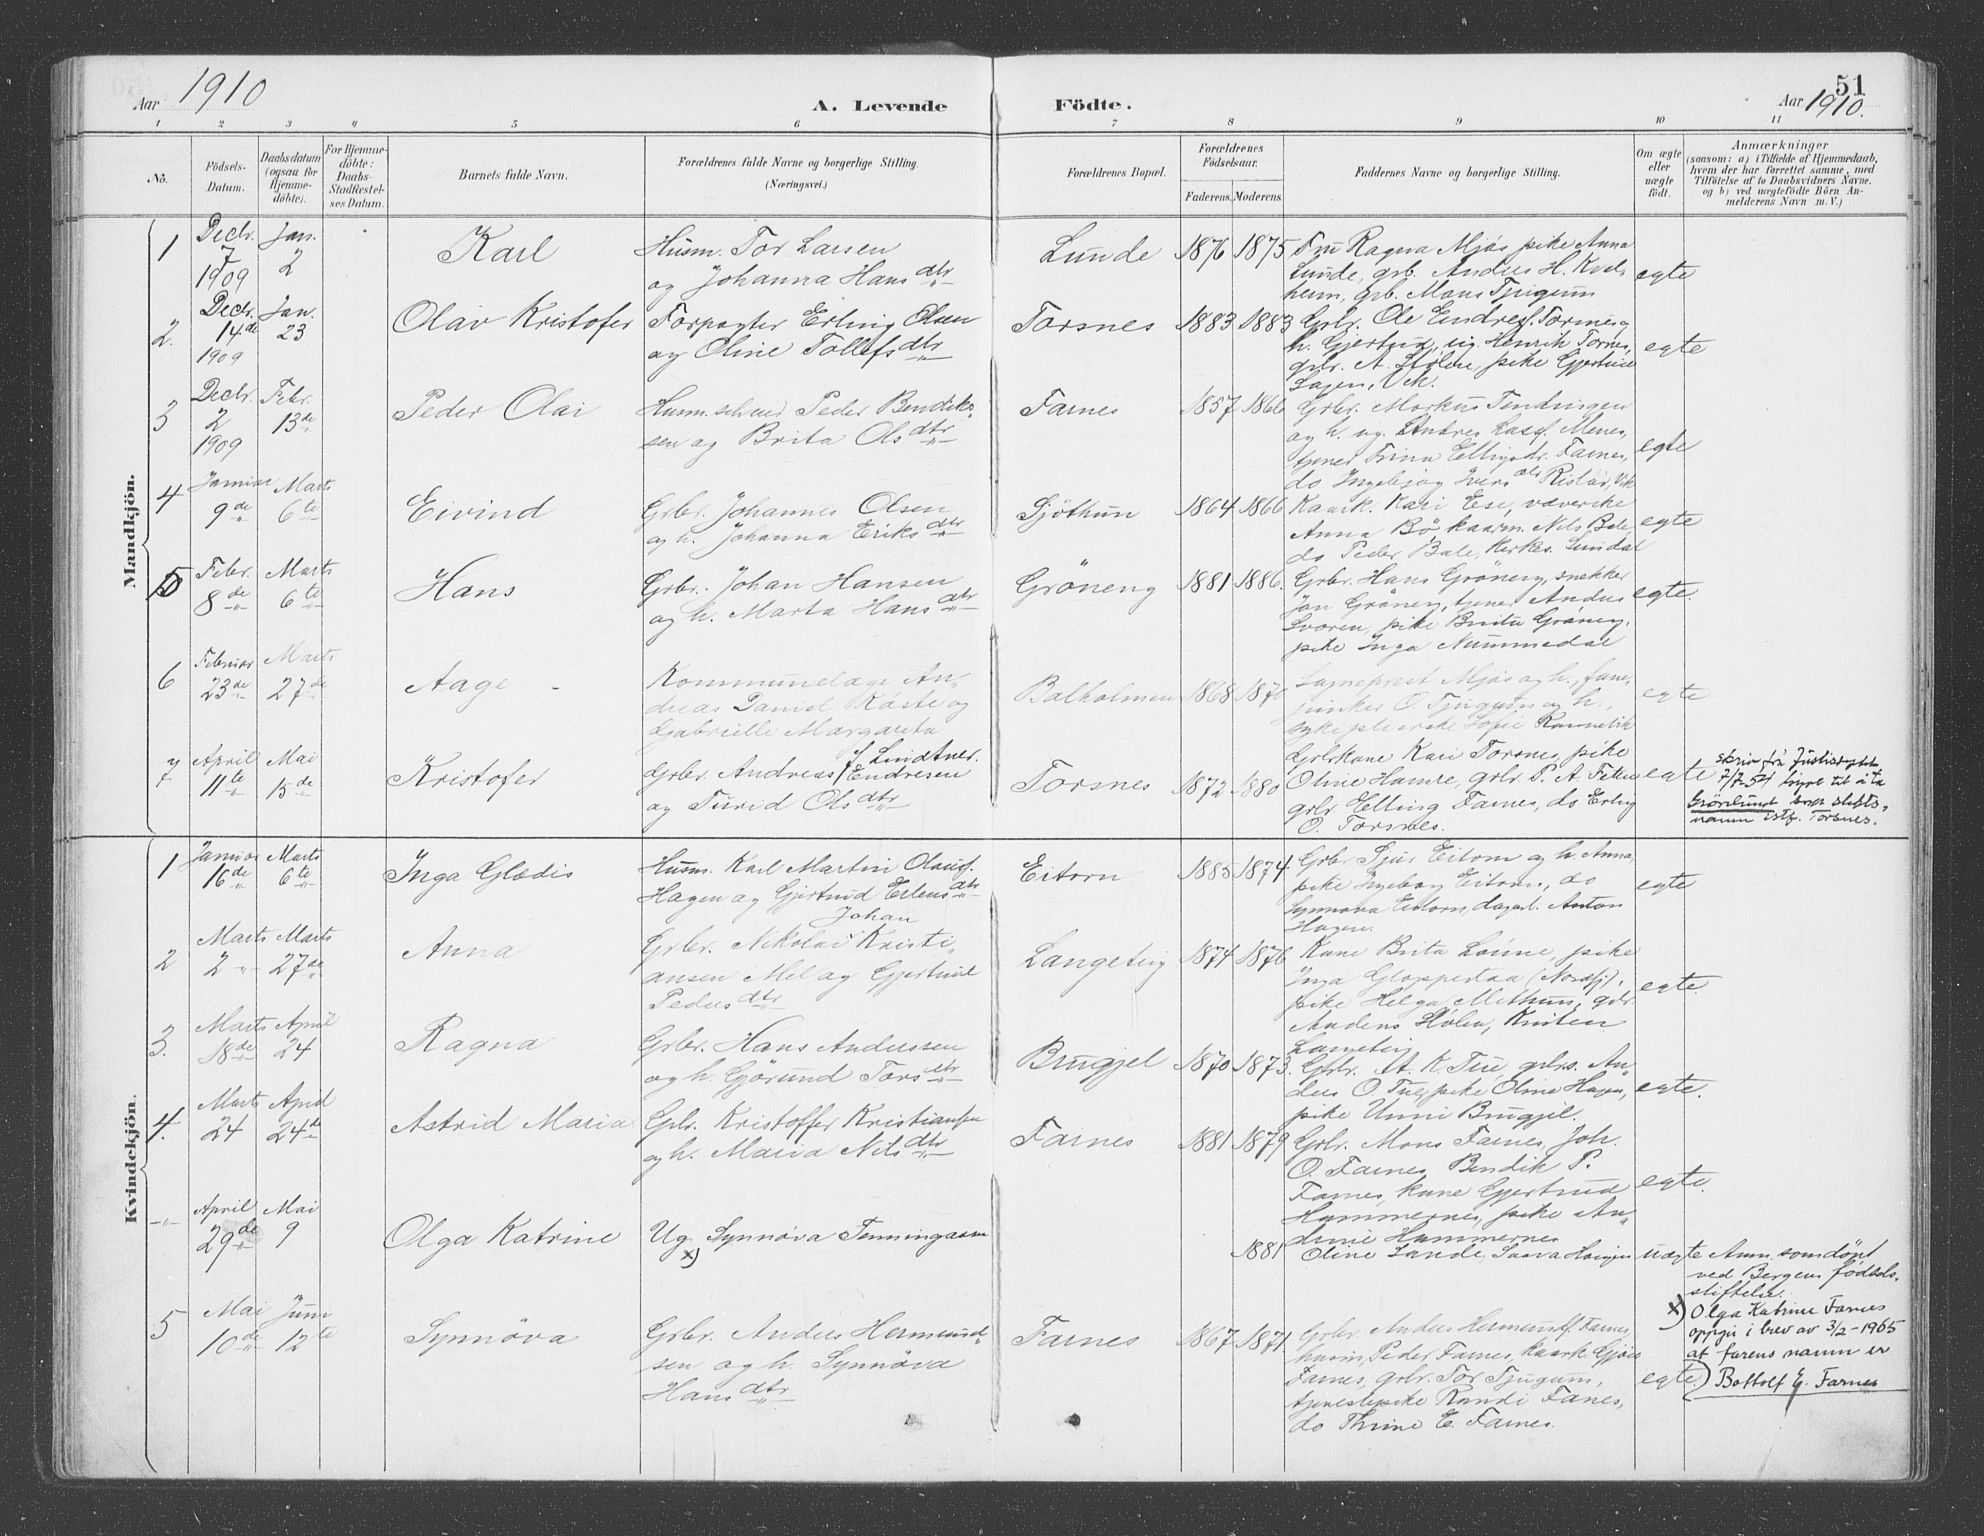 Aar 1910
A. Levende Födte.
51
Aar 1910.
1 2 3 4 5 6 7 8 9 10 11
No.
Födsels-
Datum.
Daabsdatum
(ogsaa for
Hjemme-
döbte).
For Hjemme-
döbte:
Daabs-
Stadfæstel-
ses Datum.
Barnets fulde Navn.
Forældrenes fulde Navne og borgerlige Stilling.
(Næringsvei.)
Forældrenes Bopæl.
Forældrenes
Födselsaar.
Faderens. Moderens.
Faddernes Navne og borgerlige Stilling.
Om ægte
eller
uægte
födt.
Anmærkninger
(saasom: a) i Tilfælde af Hjemmedaab,
hvem der har forrettet samme, med
Tilföielse af to Daabsvidners Navne,
og b) ved uægtefödte Börn An-
melderens Navn m. V.)
Mandkjön.
1
Decbr. 7 1909
Jan. 2
Karl
Husm. Tor Larsen
og Johanna Hansdtr
Lunde
1876 1875
Fru Ragna Mjøs, pike Anna
Lunde, grb. Anders H. Kvels
heim, grb. Mons Tjugum
egte
2.
Decbr. 14de 1909
Jan. 23
Olav Kristofer
Forpagter Erling Olsen
og Oline Tollefsdtr
Torsnes
1883 1883
Grbr. Ole Endresf. Torsnes og
h. Gjertrud, ug. Henrik Torsnes,
grbr. A. Stölen, pike Gjertrud
Lagen, Vik.
egte
3
Decbr. 2 1909
Febr. 13de
Peder Olai
Husm. Peder Bendik-
sen og Brita Olsdtr
Farnes
1857 1866
Grbr. Markus Tendringen
og h. ug. Andres Lassf. Menes,
tjener Trina Ellingsdr. Farnes,
do Ingebjøg Iversdtr Vik
egte
4
Januar 9de
Marts 6te
Eivind
Grbr. Johannes Olsen
og h. Johanna Eriksdtr
Sjöthun
1864 1866
Kaark. Kari Ese, væverske
Anna Bö, kaarm. Nils Bale,
do Peder Bale, Sundal
egte
5
Febr. 8de
Marts 6te
Hans
Grbr. Johan Hansen
og h. Marta Hansdtr
Gröneng
1881 1886.
Grbr. Hans Gröneng, snekker
Jon Gröneng, tjener Anders
Svoren, pike Brita Gröneng,
pike Inga Nummedal
egte.
6
Februar 23de
Marts 27de
Aage
Kommunelæge An-
dreas Daniel Kaste og
Gabrielle Margareta
f. Lindtner.
Balholmen
1868 1870
Sogneprest Mjøs og h., fane-
junker O. Tjugum og h.,
sykepleierske Sofie
egte
7
April 11te
Mai 15de
Kristofer
Grbr. Andreas Endresen
og Turid Olsdtr
Torsnes
1872 1880
Grbrkone Kari Torsnes, pike
Oline Hamre, grbr. P. A. Feten
grbr. Elling Farnes, do Erling
O. Torsnes.
egte
skriv frå Justisdept
7/7-54 løyve til å ta
Grönlund som slekts-
namn istf. Torsnes.
Kvindekjön.
1
Januar 16de
Marts 6te
Inga Glædis
Husm. Karl Martin Olausf.
Hagen og Gjertrud Erlensdtr
Eitorn
1885 1874
Grbr. Sjur Eitorn og h. Anna,
pike Ingeborg Eitorn, do
Synnøva Eitorn, dagarb. Anton
Hagen.
egte
2
Marts 2
Marts 27de
Anna
Johan
Grbr. Nikolai Kristi-
ansen Mel og Gjertrud
Pedersdtr
Langeteig
1874 1876
Kone Brita Lönne, pike
Inga (Nordfj),
pike Helga Mithun, grbr.
Anders Hölen, Kristen
Langeteig
egte
3.
Marts 18de
April 24
Ragna
Grbr. Hans Anderssen
og h. Görund Torsdtr
Brugjel
1870 1873.
Grbr. A. K. Tue, grbrs. An-
ders O. Tue, pike Oline Hagen,
pike Unni Brugjel.
egte.
4.
Marts 24
April 24de
Astrid Maria
Gbr. Kristoffer Kristiansen
og h. Maria Nilsdtr
Farnes
1881 1879
Grbr. Mons Farnes, Joh.
O. Farnes, Bendik P.
Farnes, kone Gjertrud
Hammernes, pike An-
drine Hammernes
egte.
-"-
April 29de
Mai 9
Olga Katrine
Ug. Synnöva Tenningaasen
x)
1881
Oline Sande,
uægte
Anm. som döpt
ved Bergens födsels-
stiftelse.
x) Olga Katrine Farnes
oppgir i brev av 3/2-1965
at farens namn er
Bottolf E. Farnes
5
Mai 10de
Juni 12te
Synnöva
Grbr. Anders Hermund-
sen og h. Synnöva
Hansdtr
Farnes
1867 1871
Grbr. Anders Hermundsf. Farnes,
husm. Peder Farnes, kaark. Gjöri
Farnes, grbr. Tor Tjugum,
tjenestepike Randi Farnes,
do Thrine E. Farnes.
egte